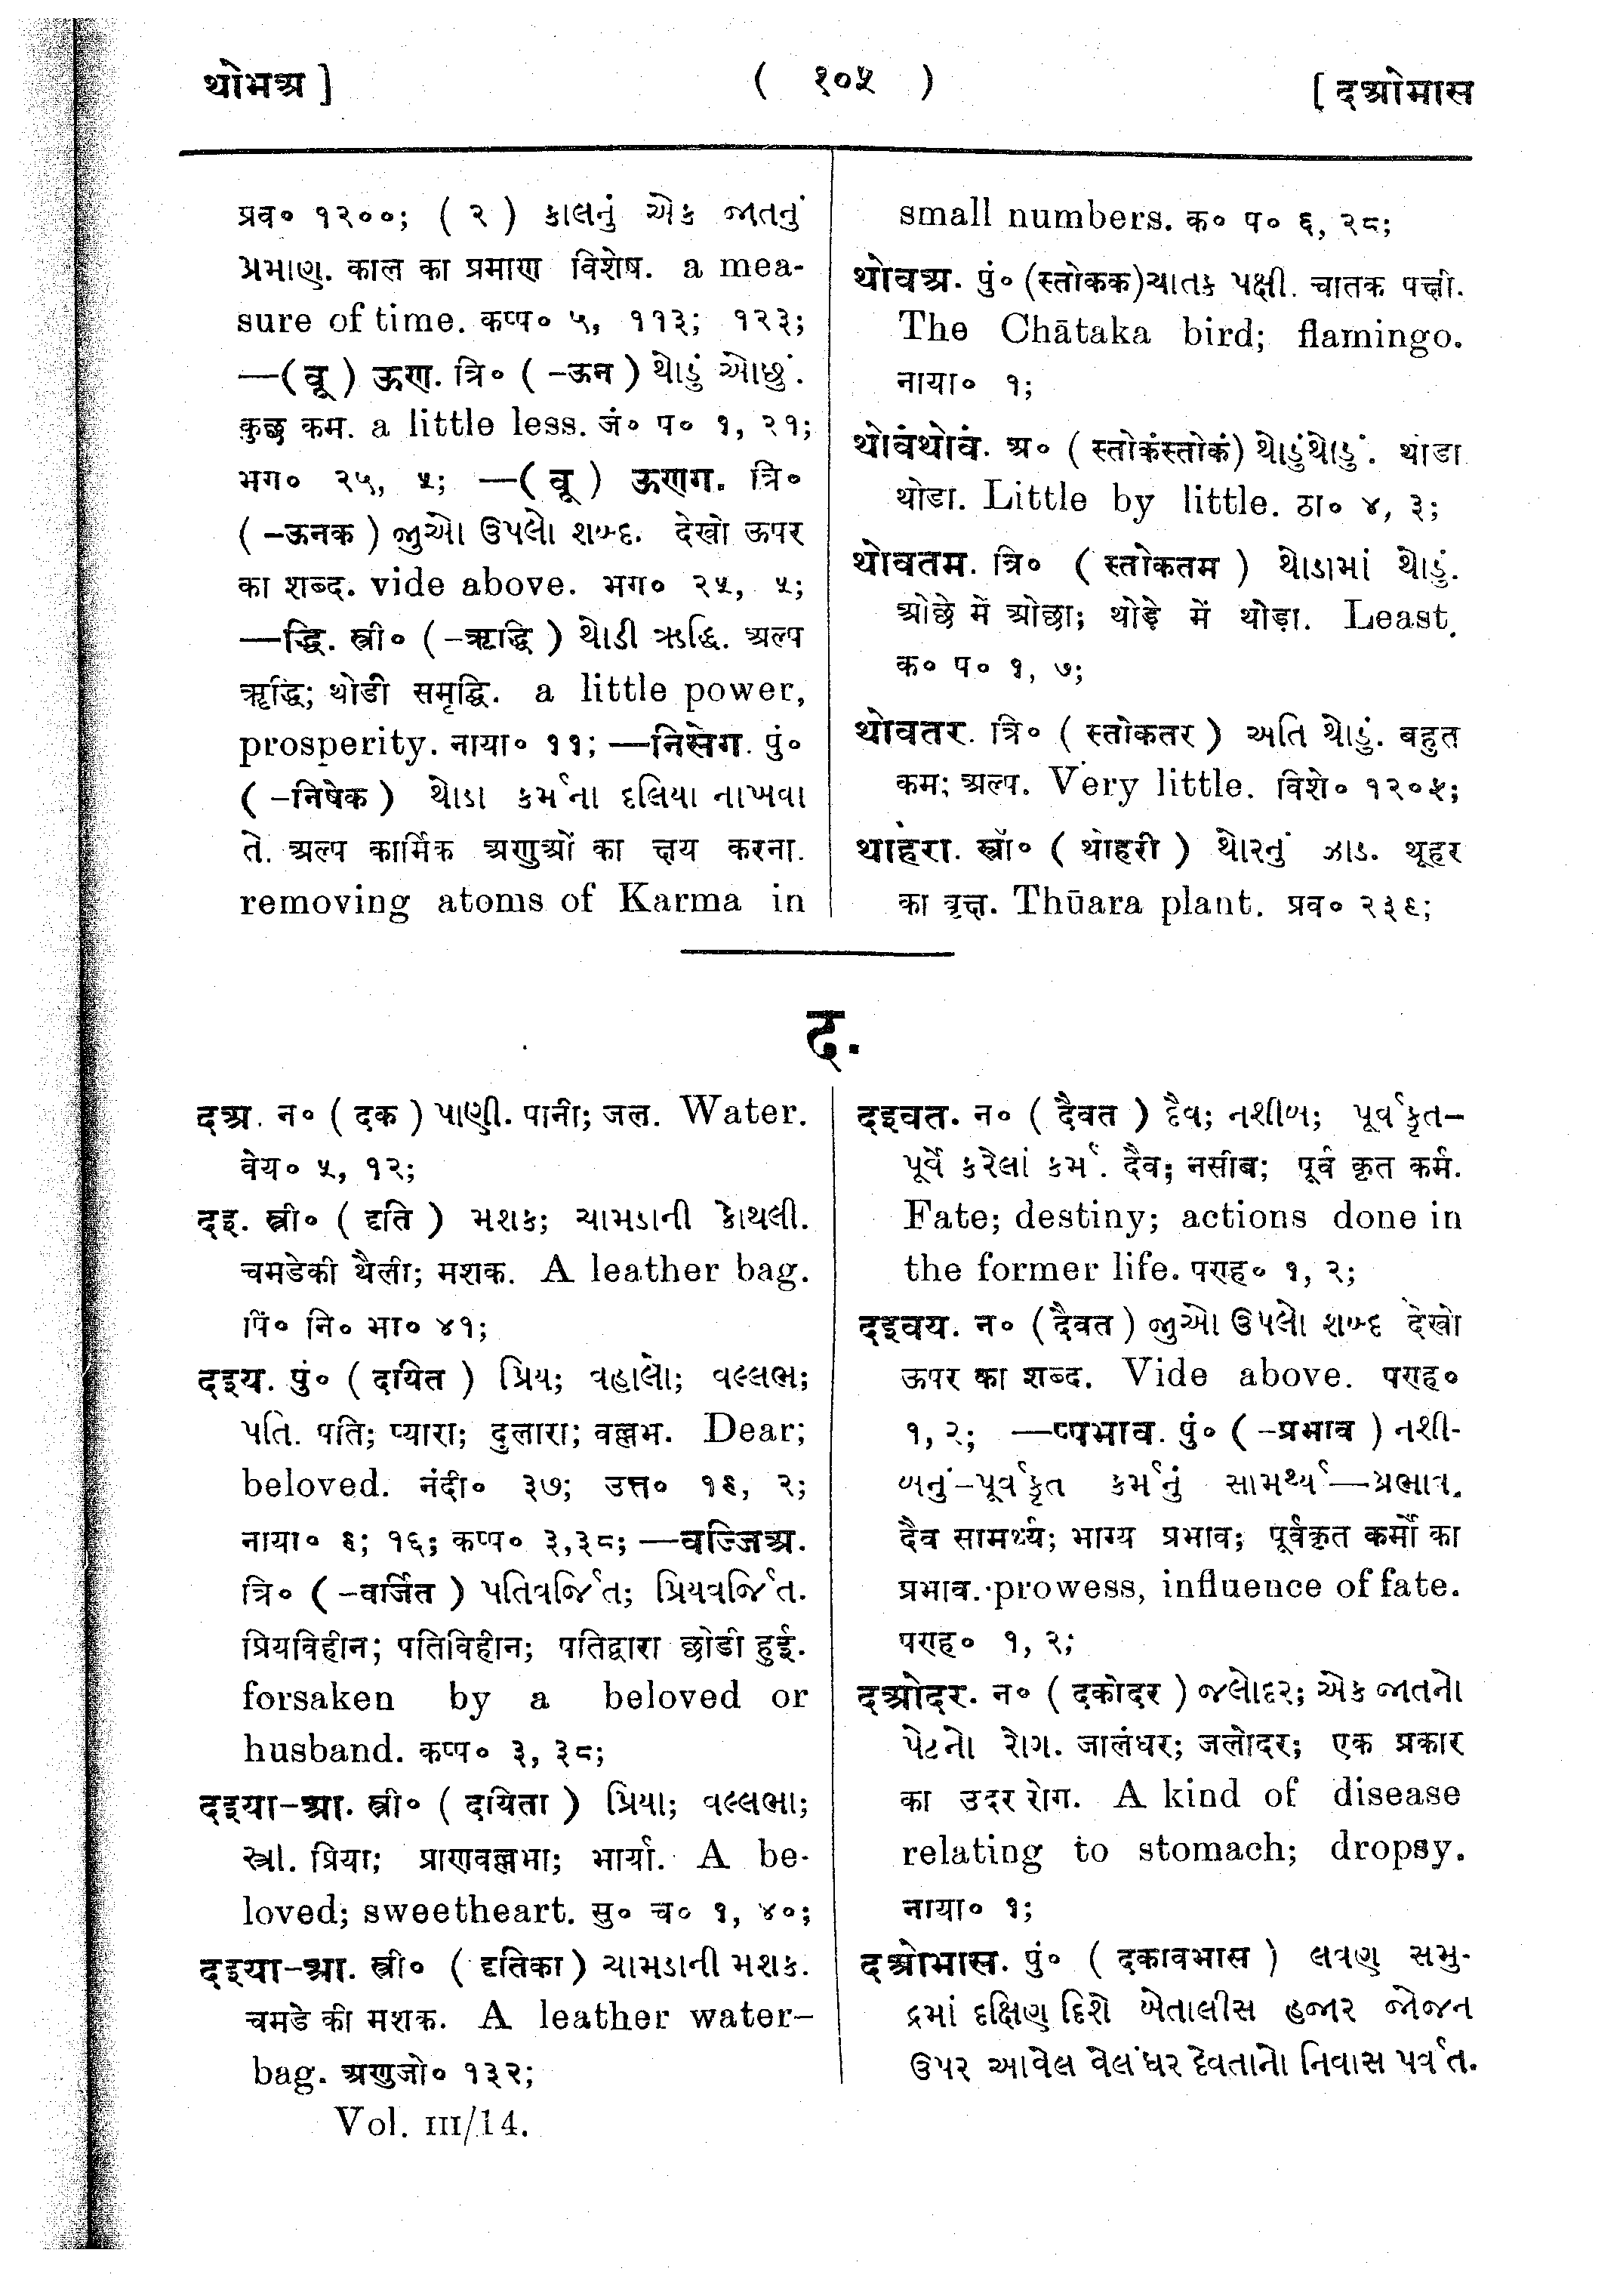 थोभअ ] ( १०५ ) [ दओभास
प्रव० १२००; ( २ ) કાલનું એક જાતનું
પ્રમાણ. काल का प्रमाण विशेष. a mea-
sure of time. कप्प० ५, ११३; १२३;
—(वू) ऊण. त्रि० ( -ऊन ) થોડું ઓછું.
कुछ कम. a little less. जं० प० १, २१;
भग० २५, ५; —( वू ) ऊणग. त्रि०
( -ऊनक ) જુઓ ઉપલો શબ્દ. देखो ऊपर
का शब्द. vide above. भग० २५, ५;
—द्धि. स्त्री० ( -ऋद्धि ) થોડી ઋદ્ધિ. अल्प
ऋद्धि; थोडी समृद्धि. a little power,
prosperity. नाया० ११; —निसेग. पुं०
( -निषेक ) થોડા કર્મના દલિયા નાખવા
તે. अल्प कार्मिक अणुओं का क्षय करना.
removing atoms of Karma in
small numbers. क० प० ६, २८;
थोवअ. पुं० (स्तोकक) ચાતક પક્ષી. चातक पक्षी.
The Chātaka bird; flamingo.
नाया० १;
थोवंथोवं. अ० ( स्तोकंस्तोकं) થોડુંથોડું. थोडा
थोडा. Little by little. ठा० ४, ३;
थोवतम. त्रि० ( स्तोकतम ) થોડામાં થોડું.
ओछे में ओछा; थोड़े में थोड़ा. Least.
क० प० १, ७;
थोवतर. त्रि० ( स्तोकतर ) અતિ થોડું. बहुत
कम; अल्प. Very little. विशे० १२०५;
थोहरी. स्त्री० ( थोहरी ) થોરનું ઝાડ. थूहर
का वृक्ष. Thūara plant. प्रव० २३६;
द.
दअ. न० ( दक ) પાણી. पानी; जल. Water.
वेय० ५, १२;
दइ. स्त्री० ( दृति ) મશક; ચામડાની કોથલી.
चमडेकी थैली; मशक. A leather bag.
पिं० नि० भा० ४१;
दइय. पुं० ( दयित ) પ્રિય; વહાલો; વલ્લભ;
પતિ. पति; प्यारा; दुलारा; वल्लभ. Dear;
beloved. नंदी० ३७; उत्त० १६, २;
नाया० ६; १६; कप्प० ३,३८; —वज्जिअ.
त्रि० ( -वर्जित ) પતિવર્જિત; પ્રિયવર્જિત.
प्रियविहीन; पतिविहीन; पतिद्वारा छोडी हुई.
forsaken by a beloved or
husband. कप्प० ३, ३८;
दइया-आ. स्त्री० ( दयिता ) પ્રિયા; વલ્લભા;
સ્ત્રી. प्रिया; प्राणवल्लभा; भार्या. A be-
loved; sweetheart. सु० च० १, ४०;
दइया-आ. स्त्री० ( दृतिका ) ચામડાની મશક.
चमडे की मशक. A leather water-
bag. अणुजो० १३२;
Vol. III/14.
दइवत. न० ( दैवत ) દૈવ; નશીબ; પૂર્વકૃત-
પૂર્વે કરેલાં કર્મ. दैव; नसीब; पूर्व कृत कर्म.
Fate; destiny; actions done in
the former life. पराह० १, २;
दइवय. न० ( दैवत ) જુઓ ઉપલો શબ્દ देखो
ऊपर का शब्द. Vide above. पराह०
१, २; —प्पभाव. पुं० ( -प्रभाव ) નશી-
બનું-પૂર્વકૃત કર્મનું સામર્થ્ય—પ્રભાવ.
दैव सामर्थ्य; भाग्य प्रभाव; पूर्वकृत कर्मों का
प्रभाव. prowess, influence of fate.
पराह० १, २;
दओदर. न० ( दकोदर ) જલોદર; એક જાતનો
પેટનો રોગ. जालंधर; जलोदर; एक प्रकार
का उदर रोग. A kind of disease
relating to stomach; dropsy.
नाया० १;
दओभास. पुं० ( दकावभास ) લવણ સમુ-
દ્રમાં દક્ષિણ દિશે બેતાલીસ હજાર જોજન
ઉપર આવેલ વેલંધર દેવતાનો નિવાસ પર્વત.